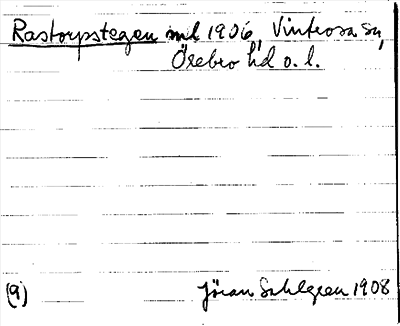 Rastorpstegen mk 1906, Vintrosa sn,
Örebro hd o. l.
(9) Jöran Sahlgren 1908